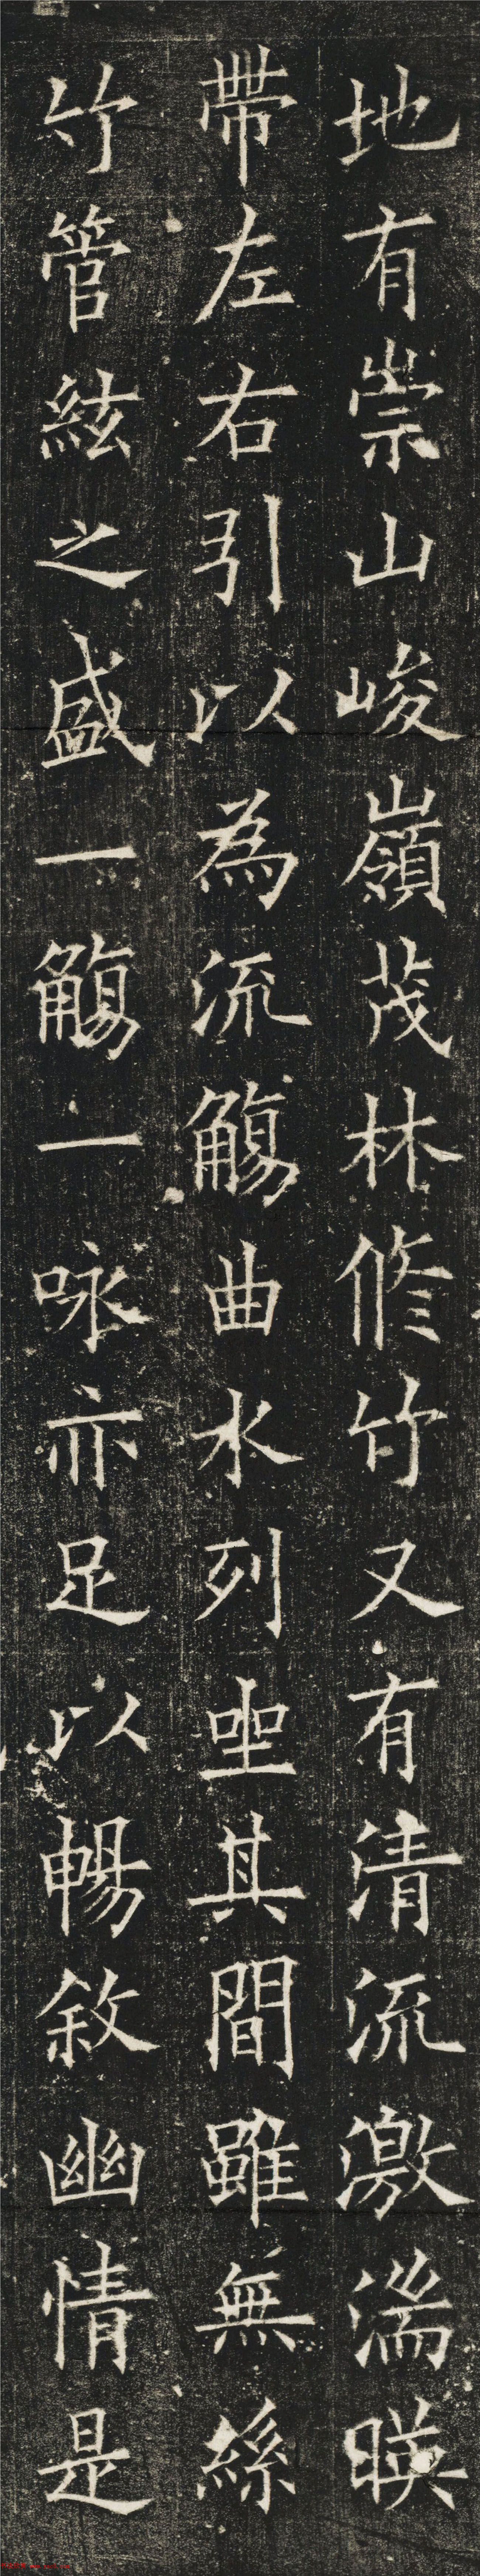 地有崇山峻嶺茂林脩竹又有清流激湍暎
帶左右引以為流觴曲水列坐其間雖無絲
竹管絃之盛一觴一咏亦足以暢敘幽情是